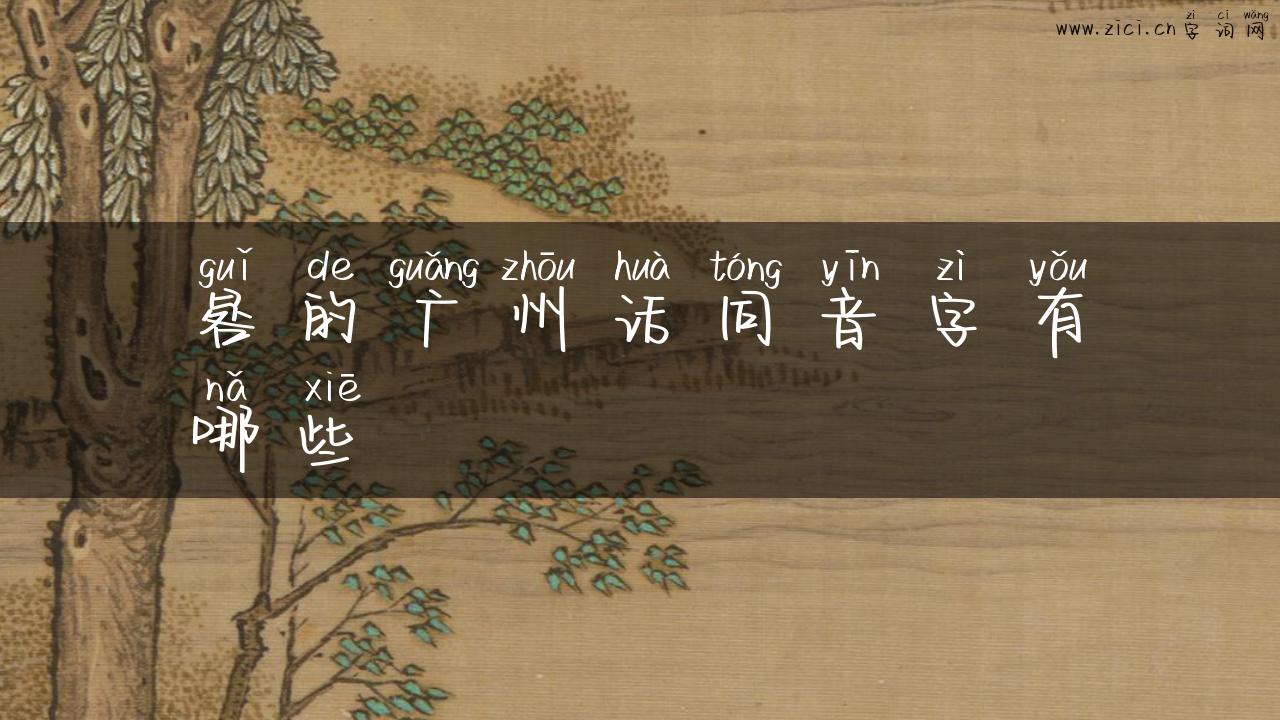 zì cí wǎng
www.zici.cn 字词网
guǐ de guǎng zhōu huà tóng yīn zì yǒu
晷的广州话同音字有
nǎ xiē
哪些